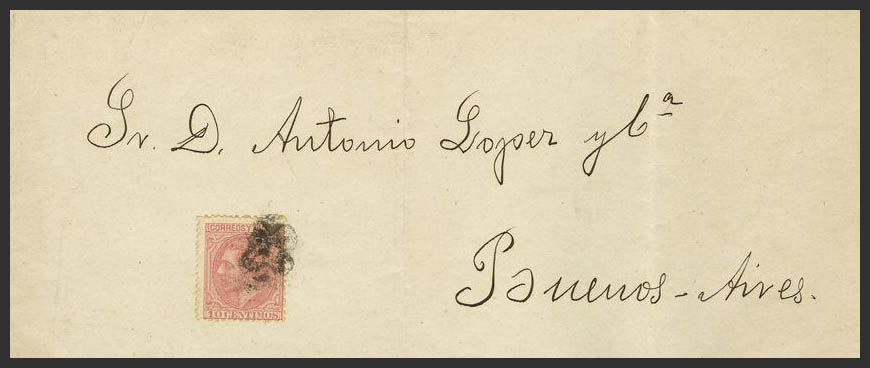 Sr. D. Antonio Lopez y Cª
CORREOS Y
10 CENTIMOS
Buenos-Aires.